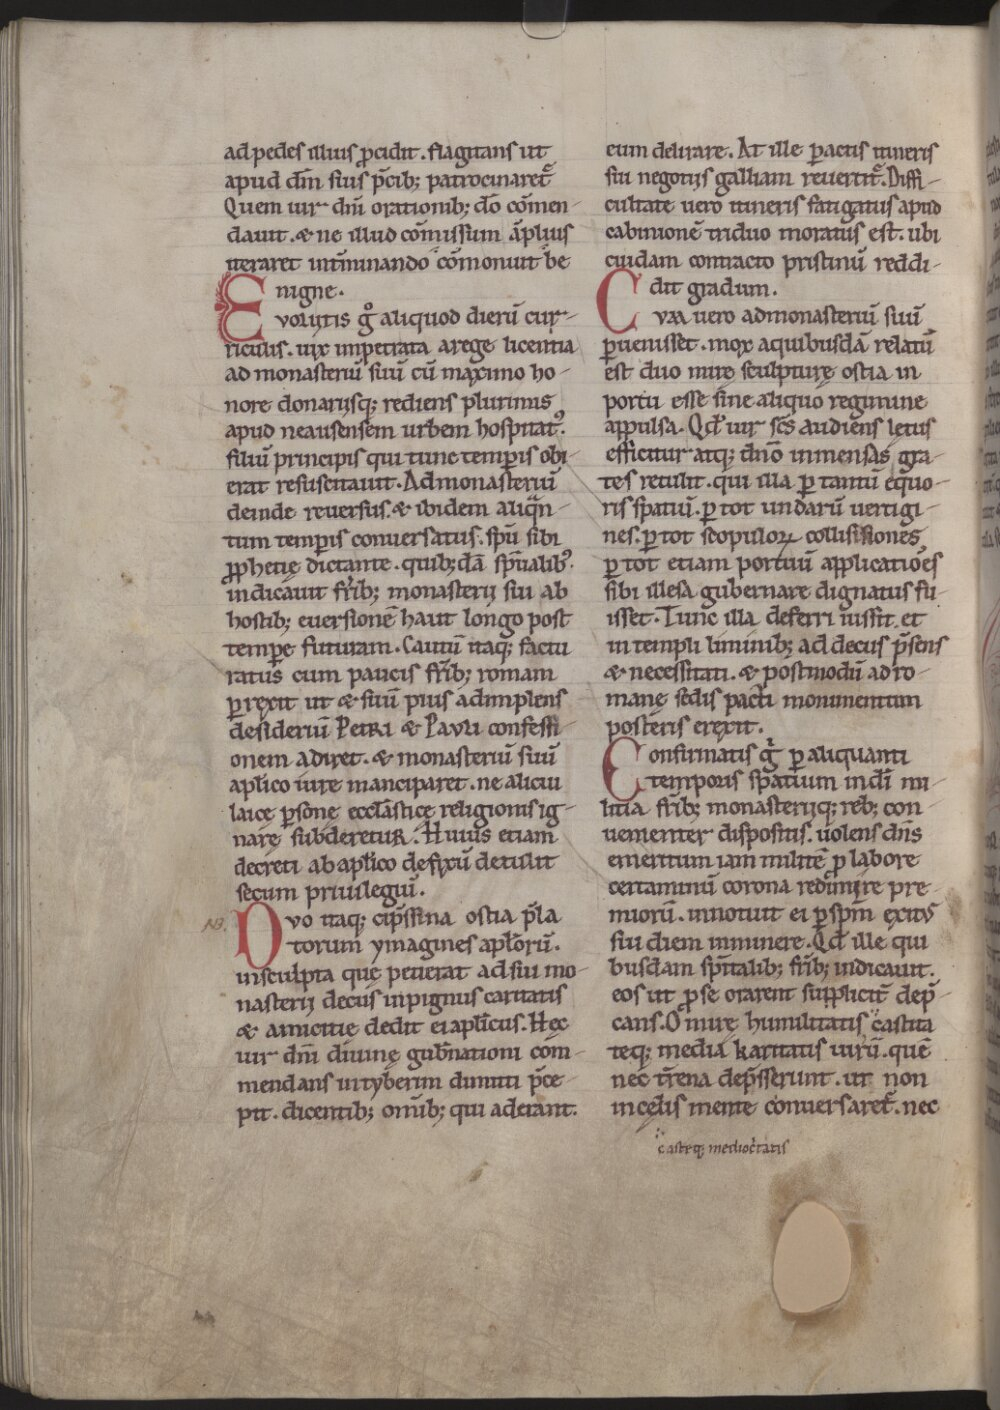 ad pedes illius ꝓcidit. flagitans ut
apud dn̄m suis p̄cib; patrocinaret᷑
Quem uir dn̄i orationib; do͞ co᷑men-
dauit. & ne illud co᷑missum a᷑plius
iteraret int᷑minando co᷑monuit be
nigne.
Euolutis gͦ aliquod dierū cur-
riculis. uix impetrata a rege licentia
ad monasteriū suū cū maximo ho-
nore donariisq; rediens plurimis
apud neausensem urbem hospitat᷒.
filiū principis qui tunc temꝑis obi-
erat resuscitauit. Ad monasteriū
deinde reuersus. & ibidem aliqn̄-
tum temꝑis conuersatus. spū sibi
ꝓphetię dictante. quib;dā sp̄italib᷒.
indicauit fr̄ib; monasterii sui ab
hostib; euersionē haut longo post
tempe futuram. Cautū itaq; factu
ratus cum paucis fr̄ib; romam
ꝑrexit ut & suū pius adimplens
desideriū Petri & Pauli confessi-
onem adiret. & monasteriū suū
aplico iure manciparet. ne alicui
laicę ꝑsonę eccl̄asticę religionis ig-
narę subderetur. Huius etiam
decreti ab aplico defixū detulit
secum priuilegiū.
Duo itaq; cip̄ssina ostia p̄la
NB.
torum ymagines aplorū.
insculpta quę petierat ad sui mo-
nasterii decus in pignus caritatis
& amicitię dedit ei aplicus. Hęc
uir dn̄i diuinę gub̄nationi com-
mendans in tyberim dimitti p̄ce-
pit. dicentib; om̄ib; qui aderant.
eum delirare. At ille ꝑactis itineris
sui negotiis galliam reuertit᷑. Diffi-
cultate uero itineris fatigatus apud
cabinionē triduo moratus est. ubi
cuidam contracto pristinū reddi-
dit gradum.
Cum uero ad monasteriū suū
ꝑuenisset. mox a quibusdā relatū
est duo mirę sculpturę ostia in
portu esse sine aliquo regimine
appulsa. Qd̄ uir sc̄s audiens letus
efficitur atq; dn̄o inmensas gra-
tes retulit. qui illa ꝑ tantū equo-
ris spatiū. ꝑ tot undarū uertigi-
nes. ꝑ tot scopuloꝝ collisisiones
ꝑ tot etiam portuū applicatio᷑es
sibi illesa gubernare dignatus fu-
isset. Tunc illa deferri iussit. et
in templi liminib; ad decus p̄sens
& necessitati. & postmodū ad ro-
manę sedis pacti monimentum
posteris erexit.
Confirmatis gͥ ꝑ aliquanti
temporis spatium in dn̄i mi-
litia fr̄ib; monasteriiq; reb; con-
uenienter dispositis. uolens dn̄s
emeritum iam militē ꝓ labore
certaminū corona redimire pre-
miorū. innotuit ei ꝑ sp̄m exitꝰ
sui diem inminere. Qd̄ ille qui
busdam sp̄italib; fr̄ib; indicauit.
eos ut ꝓ se orarent suppliciť dep̄-
cans. O mirę humilitatis castita
teq; media karitatis uirū. quē
nec t᷑rena dep̄sserunt. ut non
in cęlis mente conuersaret᷑. nec
casteq; mediocͥtatis